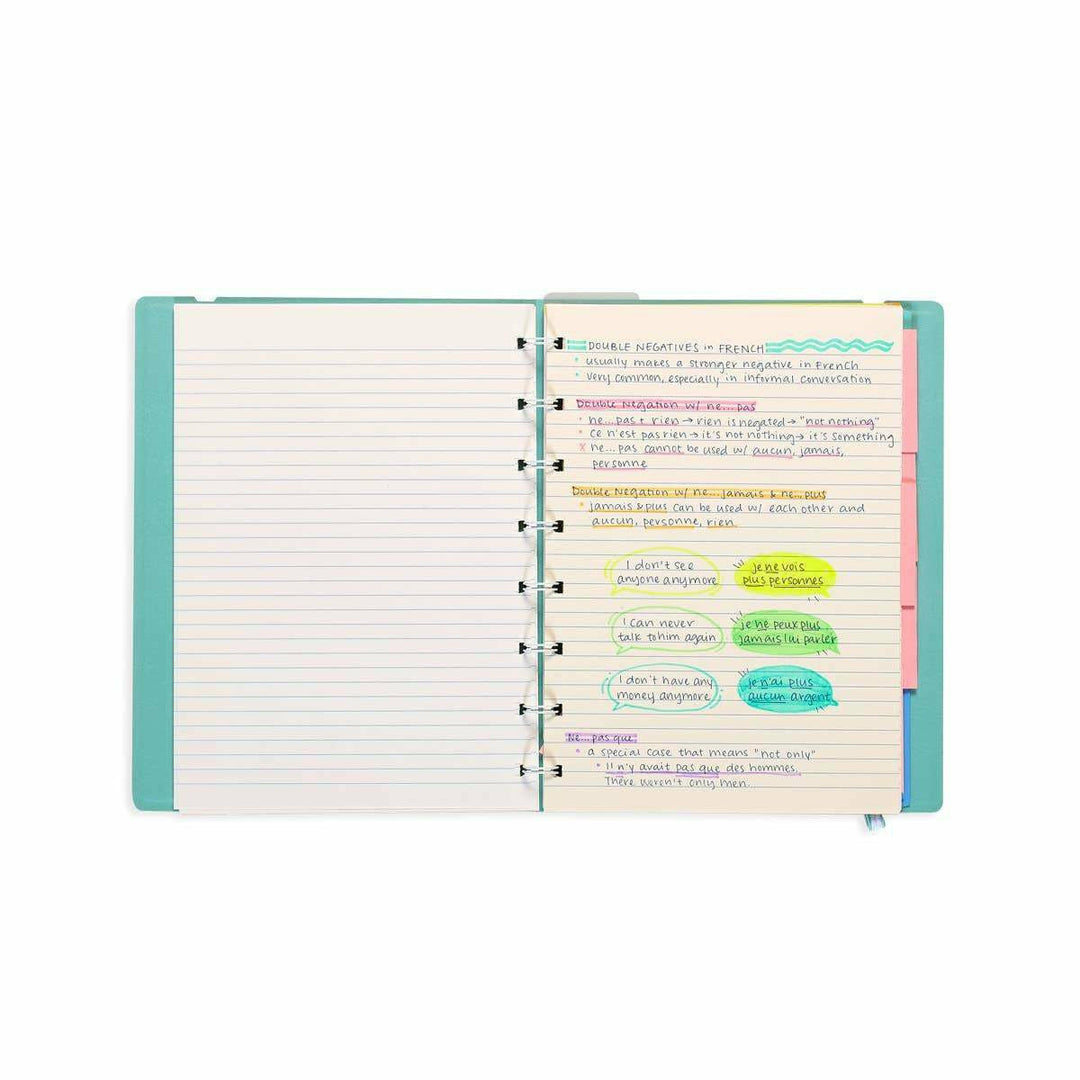 DOUBLE NEGATIVES in FRENCH
• usually makes a stronger negative in French
• very common, especially in informal conversation
Double Negation w/ ne...pas
• ne...pas + rien → rien is negated → "not nothing"
• ce n'est pas rien → it's not nothing → it's something
x ne...pas cannot be used w/ aucun, jamais,
personne
Double Negation w/ ne...jamais & ne...plus
• jamais & plus can be used w/ each other and
aucun, personne, rien.
I don't see
anyone anymore
je ne vois
plus personnes
I can never
talk to him again
je ne peux plus
jamais lui parler
I don't have any
money anymore
je n'ai plus
aucun argent
Ne...pas que
• a special case that means "not only"
• Il n'y avait pas que des hommes.
There weren't only men.